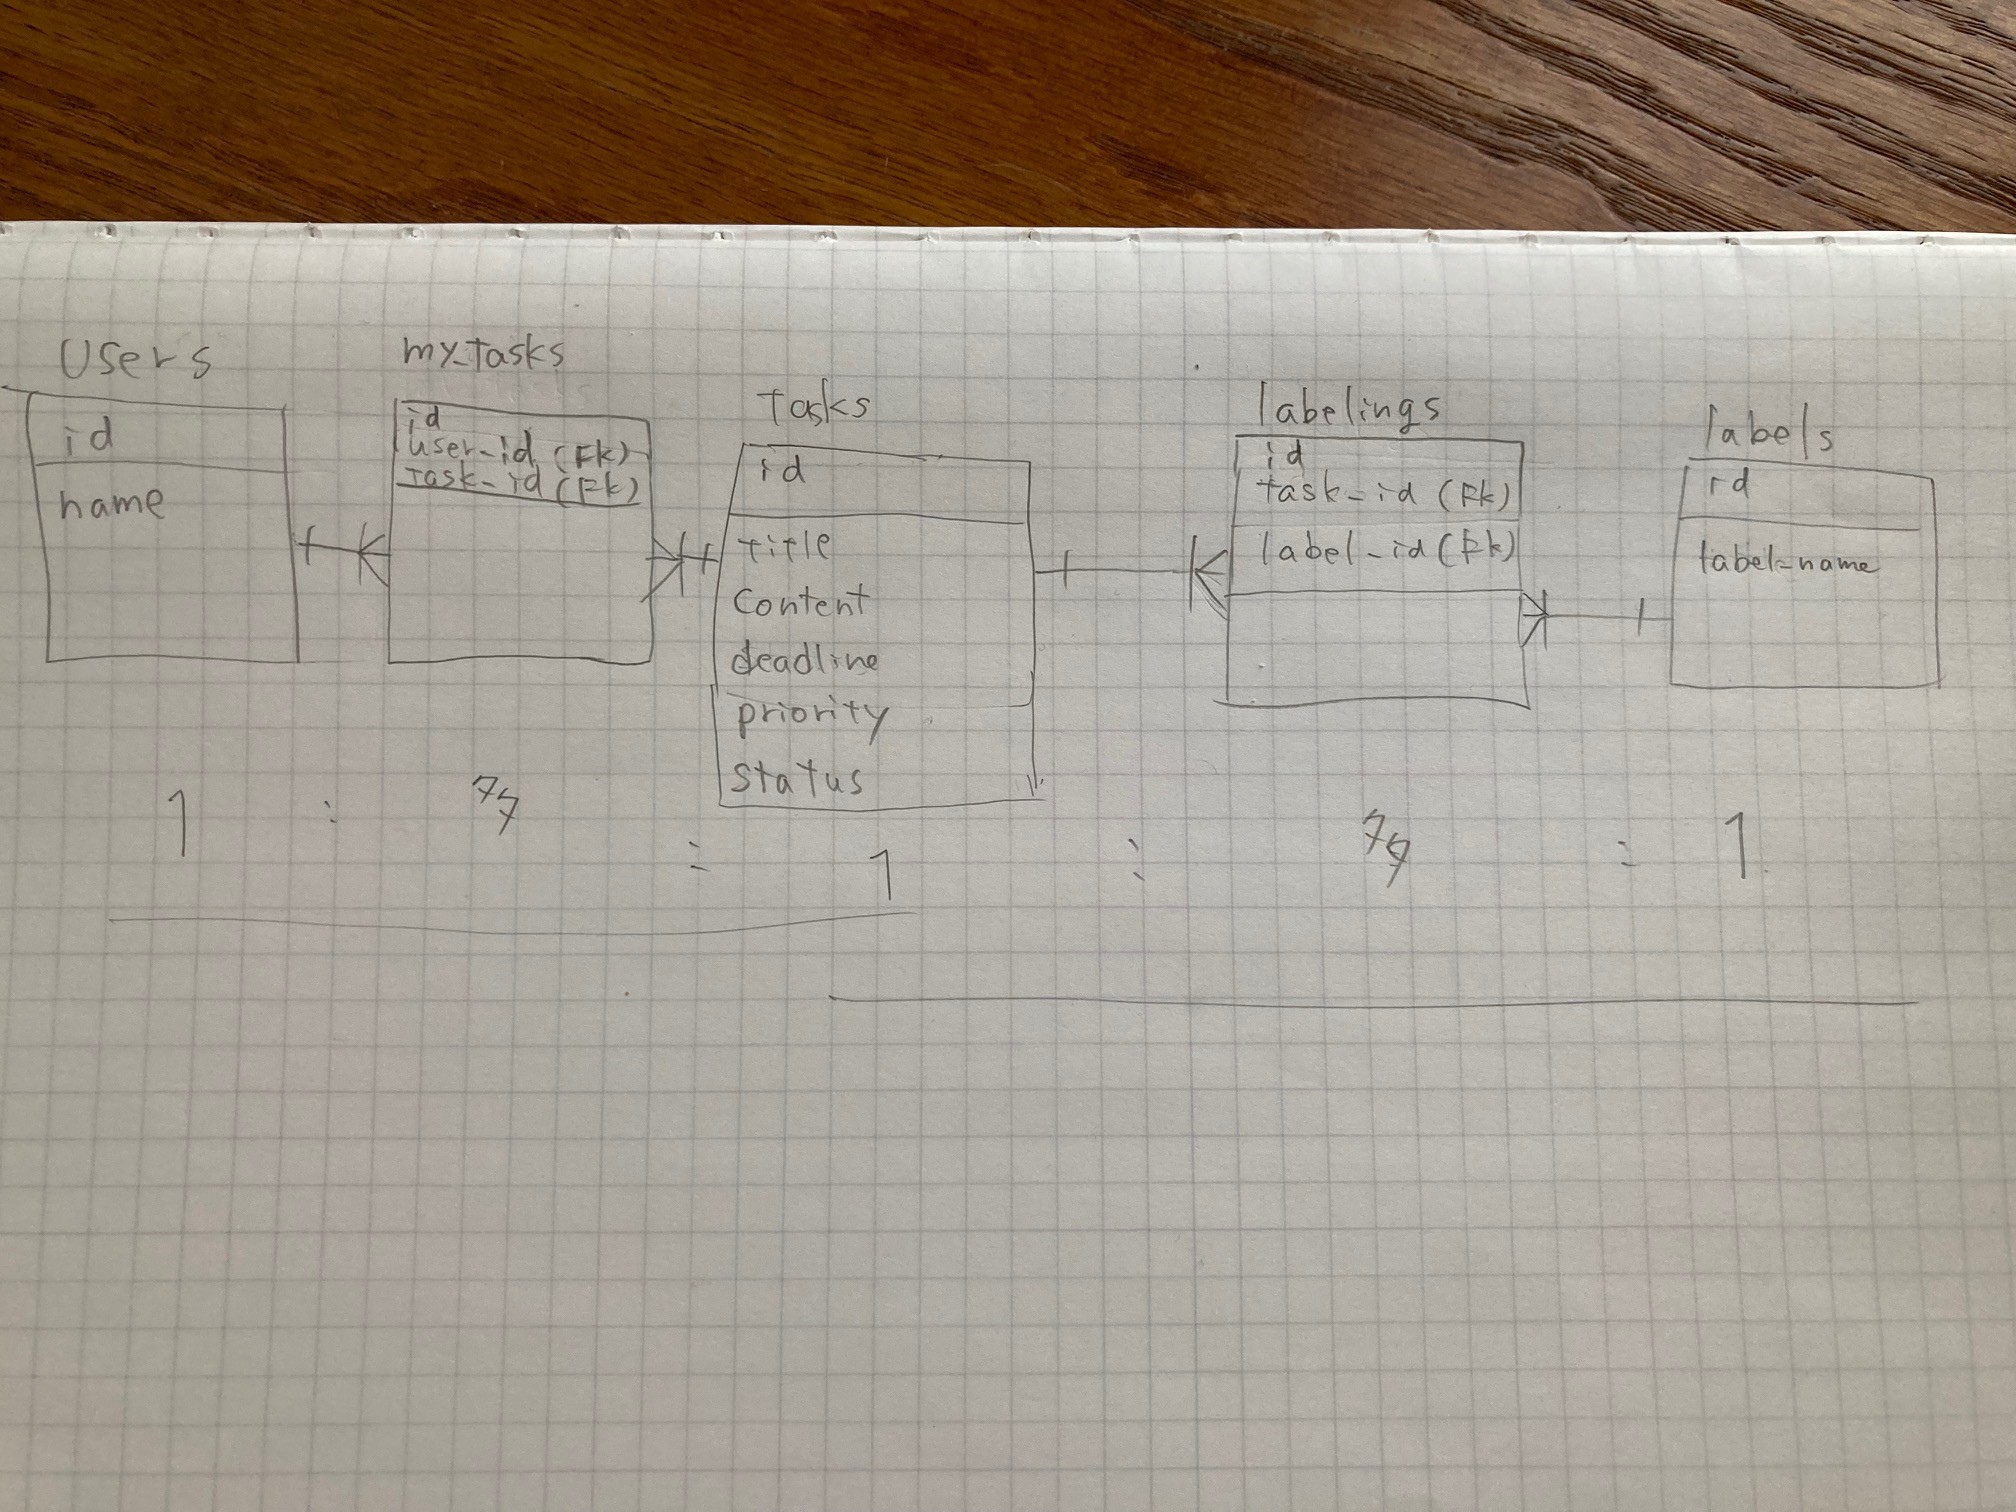 users
id
name
my_tasks
id
user_id (FK)
task_id (FK)
Tasks
id
title
content
deadline
priority
status
labelings
id
task_id (FK)
label_id (FK)
labels
id
label_name
1 : 多 : 1 : 多 : 1